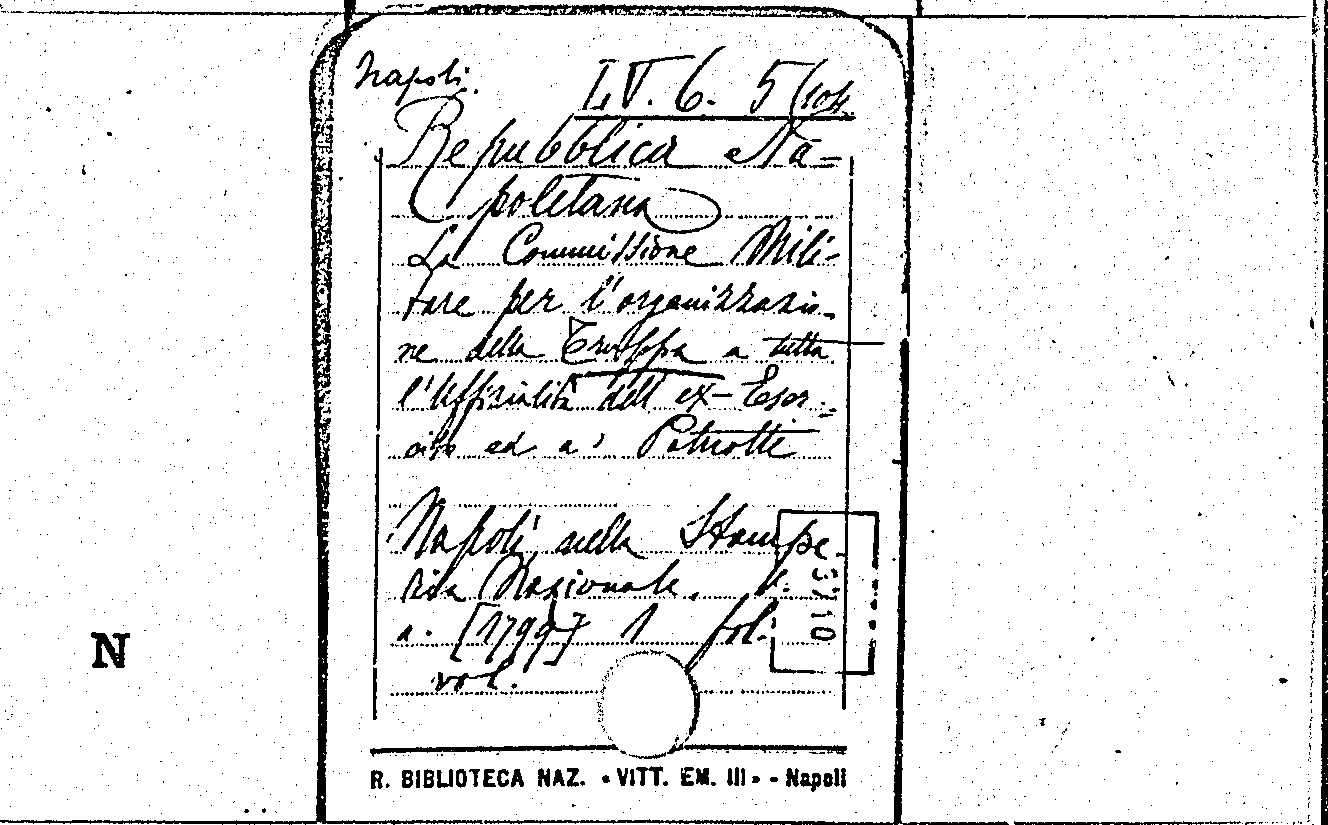 Napoli.
LV. 6. 5(104.
Repubblica Na=
poletana
La Commissione Mili-
tare per l'organizzazio-
ne della Truppa a tutta
l'Uffizialità dell'ex-Eser-
cito ed a' Patriotti
Napoli nella Stampe-
ria Nazionale, s.
a. [1799] 1 fol:
vol.
3710
N
R. BIBLIOTECA NAZ. «VITT. EM. III» - Napoli